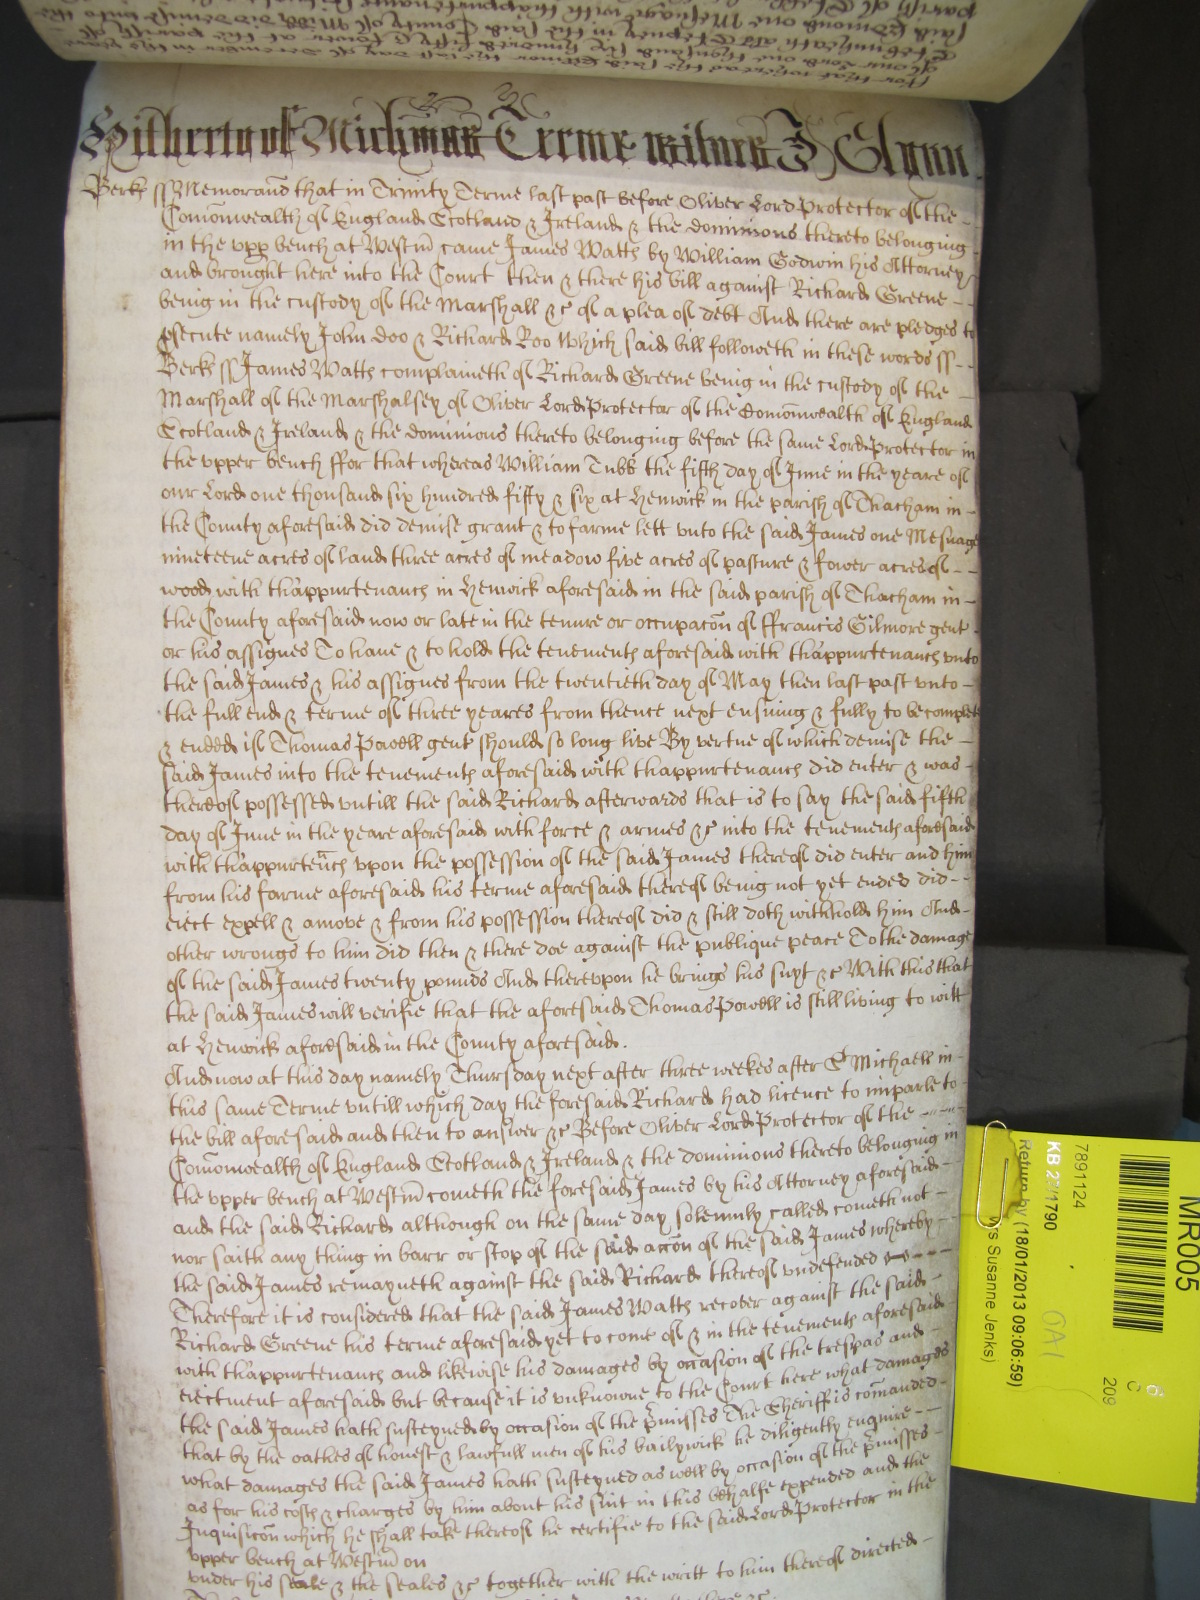 for that whereas the said Elinor the last day of December in the yeare
of our Lord one thousand six hundred fifty & fower at the parish of
Stebunheath als Stepney in the said County of Midd did demise unto the
said Edmond one Mesuage with thappurtenances
parish of
Hitherto of Michmas Terme witnes J Glynn.
Berks ss Memorand that in Trinity Terme last past before Oliver Lord Protector of the
Comonwealth of England Scotland & Ireland & the dominions thereto belonging
in the upp bench at Westm came James Watts by William Godwin his Attorney
and brought here into the Court then & there his bill against Richard Greene
being in the custody of the Marshall &c of a plea of debt And there are pledges to
psecute namely John Doo & Richard Roo Which said bill followeth in these words ss
Berks ss James Watts complaineth of Richard Greene being in the custody of the
Marshall of the Marshalsey of Oliver Lord Protector of the Comonwealth of England
Scotland & Ireland & the dominions thereto belonging before the same Lord Protector in
the upper bench ffor that whereas William Tubb the fifth day of June in the yeare of
our Lord one thousand six hundred fifty & six at Henwick in the parish of Thacham in
the County aforesaid did demise grant & to farme lett unto the said James one Mesuage
nineteene acres of land three acres of meadow five acres of pasture & fower acres of
wood with thappurtenances in Henwick aforesaid in the said parish of Thacham in
the County aforesaid now or late in the tenure or occupacon of ffrancis Gilmore gent
or his assignes To have & to hold the tenements aforesaid with thappurtenances unto
the said James & his assignes from the twentieth day of May then last past unto
the full end & terme of three yeares from thence next ensuing & fully to be complete
& ended if Thomas Powell gent should so long live By vertue of which demise the
said James into the tenements aforesaid with thappurtenances did enter & was
thereof possessed untill the said Richard afterwards that is to say the said fifth
day of June in the yeare aforesaid with force & armes &c into the tenements aforesaid
with thappurtenñces upon the possession of the said James thereof did enter and him
from his farme aforesaid his terme aforesaid thereof being not yet ended did
eiect expell & amove & from his possession thereof did & still doth withhold him And
other wrongs to him did then & there doe against the publique peace To the damage
of the said James twenty pounds And thereupon he brings his suyt &c With this that
the said James will verifie that the aforesaid Thomas Powell is still living to witt
at Henwick aforesaid in the County aforesaid.
And now at this day namely Thursday next after three weekes after St Michaell in
this same Terme untill which day the foresaid Richard had licence to imparle to
the bill aforesaid and then to answer &c Before Oliver Lord Protector of the
Comonwealth of England Scotland & Ireland & the dominions thereto belonging in
the upper bench at Westm cometh the foresaid James by his Attorney aforesaid
and the said Richard although on the same day solemnly called cometh not
nor saith any thing in barr or stop of the said accon of the said James whereby
the said James remayneth against the said Richard thereof undefended
Therefore it is considered that the said James Watts recover against the said
Richard Greene his terme aforesaid yet to come of & in the tenements aforesaid
with thappurtenances and likewise his damages by occasion of the trespas and
eiectment aforesaid but because it is unknowne to the Court here what damages
the said James hath susteyned by occasion of the pmisses The Sheriff is comanded
that by the oathes of honest & lawfull men of his bailywick he diligently enquire
what damages the said James hath susteyned as well by occasion of the pmisses
as for his costs & charges by him about his suit in this behalfe expended and the
Inquisicon which he shall take thereof he certifie to the said Lord Protector in the
upper bench at Westm on
under his seale & the seales &c together with the writt to him thereof directed
MR005
209
C
7891124
KB 27/1790
OA1
Return by (18/01/2013 09:06:59)
Ms Susanne Jenks)